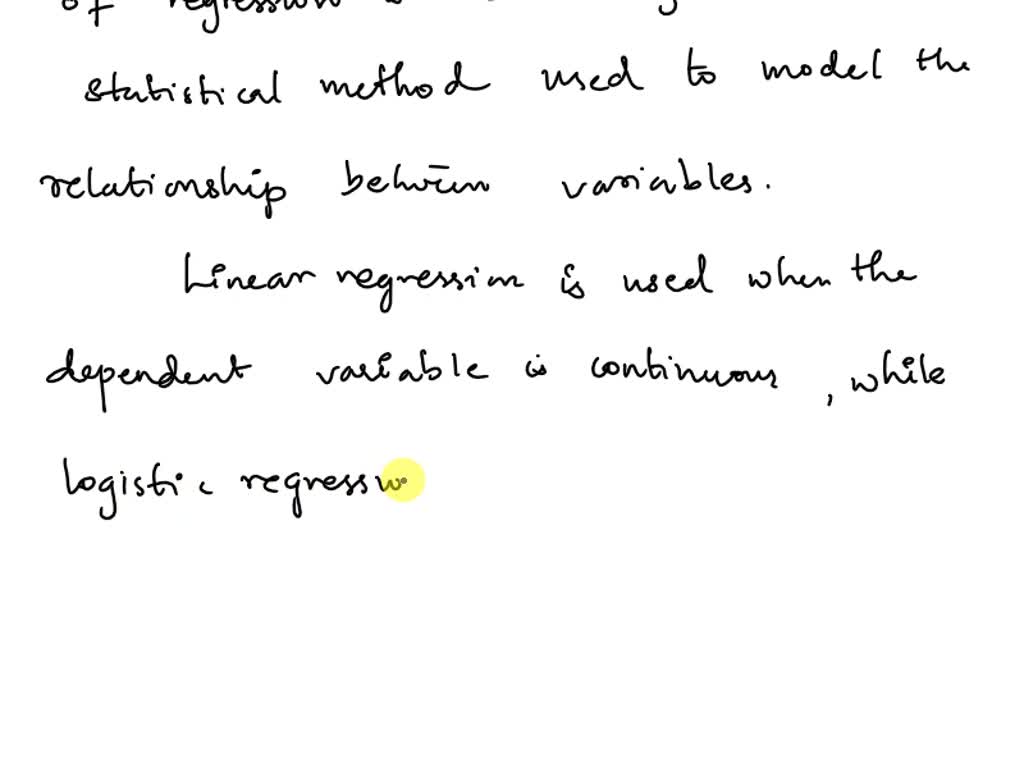 of regression
statistical method used to model the
relationship between variables.
Linear regression is used when the
dependent variable is continuous, while
logistic regress